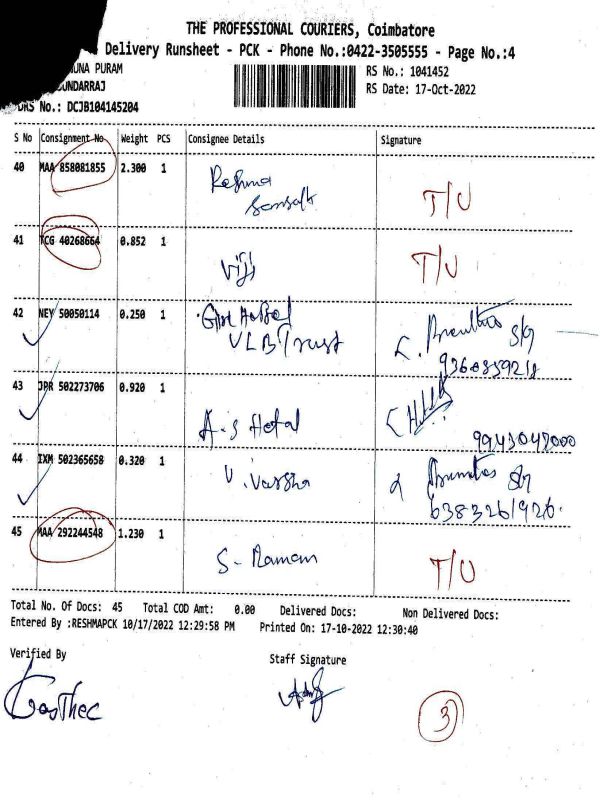 THE PROFESSIONAL COURIERS, Coimbatore
Delivery Runsheet - PCK - Phone No.:0422-3505555 - Page No.:4
UNA PURAM
UNDARRAJ
DRS No.: DCJB104145204
RS No.: 1041452
RS Date: 17-Oct-2022
S No Consignment No Weight PCS Consignee Details Signature
40 MAA 858081855 2.300 1 Reshma T/U
41 TCG 40268664 0.852 1 Viji T/U
42 NEY 50050114 0.250 1 VLB Trust
9360859218
43 JPR 502273706 0.920 1 A.S Hotal
9943047000
44 IXM 502365658 0.320 1 V. Varsha
6383261926.
45 MAA 292244548 1.230 1 S- Ramam T/U
Total No. Of Docs: 45 Total COD Amt: 0.00 Delivered Docs: Non Delivered Docs:
Entered By :RESHMAPCK 10/17/2022 12:29:58 PM Printed On: 17-10-2022 12:30:40
Verified By Staff Signature
3